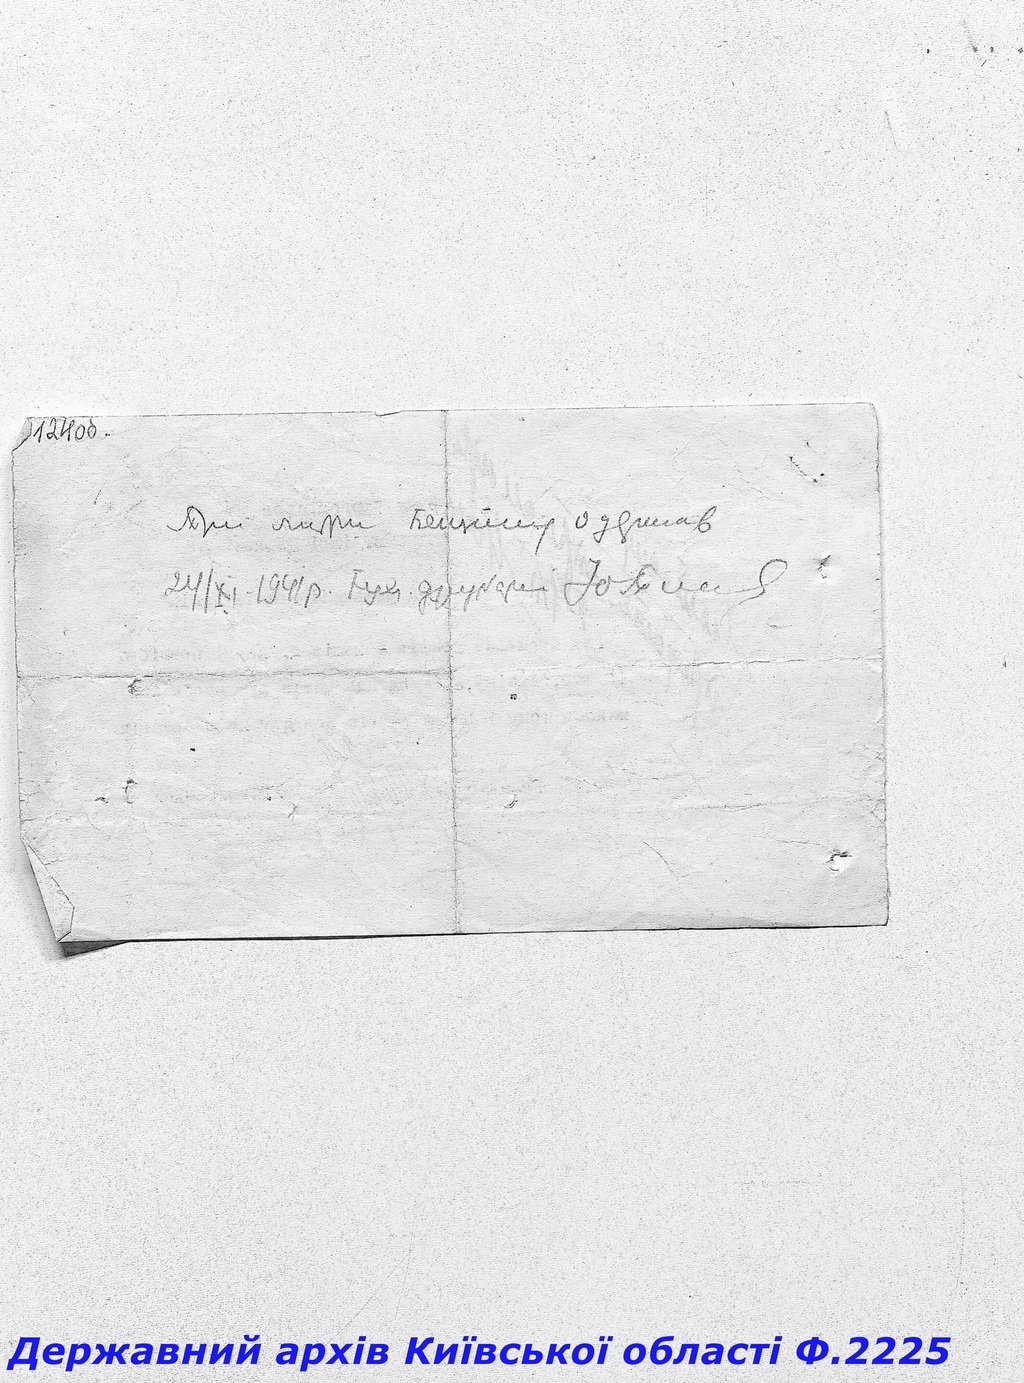 124об.
Три литри бензину одержав
24/XI. 1941р. Бух. друкарні
Державний архів Київської області Ф.2225